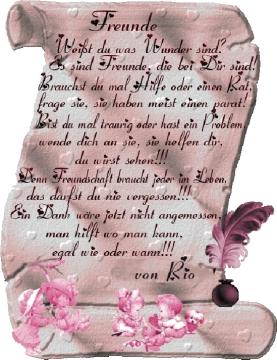 Freunde
Weißt du was Wunder sind?
Es sind Freunde, die bei Dir sind!
Brauchst du mal Hilfe oder einen Rat,
frage sie, sie haben meist einen parat!
Bist du mal traurig oder hast ein Problem
wende dich an sie, sie helfen dir,
du wirst sehen!!!
Denn Freundschaft braucht jeder im Leben,
das darfst du nie vergessen!!!
Ein Dank wäre jetzt nicht angemessen,
man hilft wo man kann,
egal wie oder wann!!!
von Rio